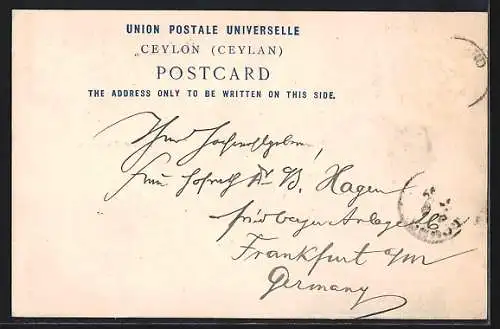 UNION POSTALE UNIVERSELLE
CEYLON (CEYLAN)
POSTCARD
THE ADDRESS ONLY TO BE WRITTEN ON THIS SIDE.
Ihrer Hochwohlgeboren,
Frau Hofrath Dr B. Hagen
Friedberger Anlage
Frankfurt a/M
Germany